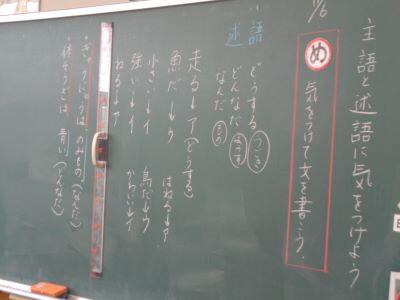 主語と述語に気をつけよう
11/6
め 気をつけて文を書こう。
述語
どうする うごき
どんなだ ようす
なんだ もの
走る→ア(どうする)
はねる→ア
魚だ→ウ
鳥だ→ウ
小さい→イ
かわいい→イ
強い→イ
ねる→ア
ぎゅうにゅうは のみもの(なんだ)
青い(どんなだ)